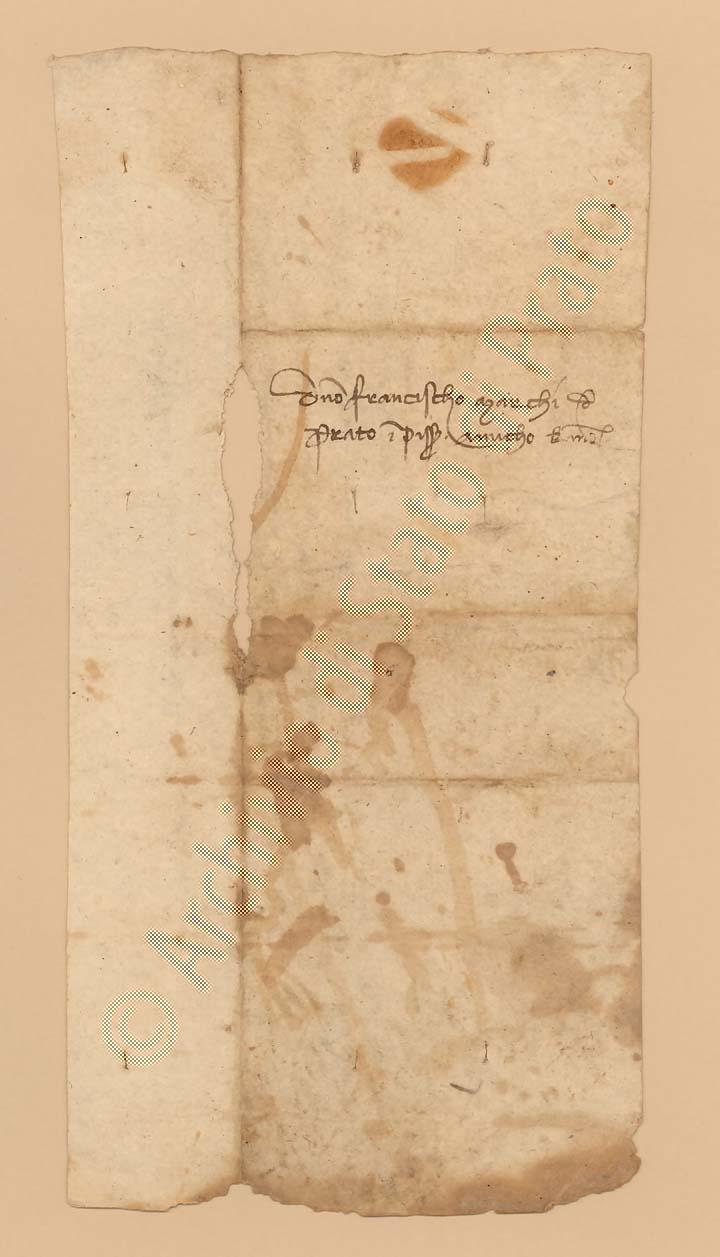 Dno francischo marchi de
Prato i pisis
© Archivio di Stato di Prato